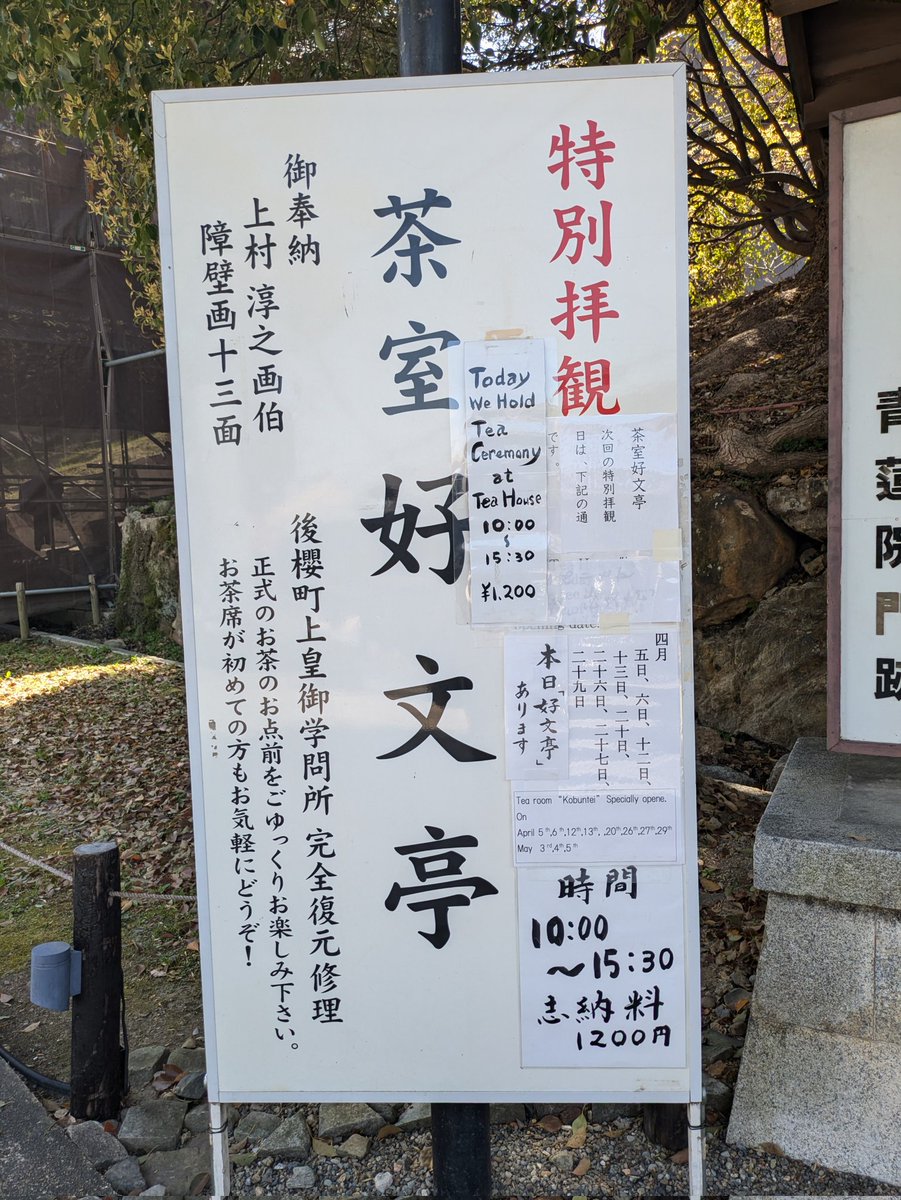 特別拝観
茶室好文亭
御奉納
上村淳之画伯
障壁画十三面
後櫻町上皇御学問所 完全復元修理
正式のお茶のお点前をごゆっくりお楽しみ下さい。
お茶席が初めての方もお気軽にどうぞ!
Today
We Hold
Tea
Ceremony
at
Tea House
10:00
~
15:30
¥1.200
茶室好文亭
次回の特別拝観
日は、下記の通
です。
opening date.
四月
五日、六日、十二日、
十三日、二十日、
二十六日、二十七日、
二十九日
本日「好文亭」
あります
Tea room "Kobuntei" Specially opene.
On
April 5th,6th,12th,13th, .20th,26th,27th,29th
May 3rd,4th,5th
時間
10:00
~15:30
志納料
1200円
青蓮院門跡